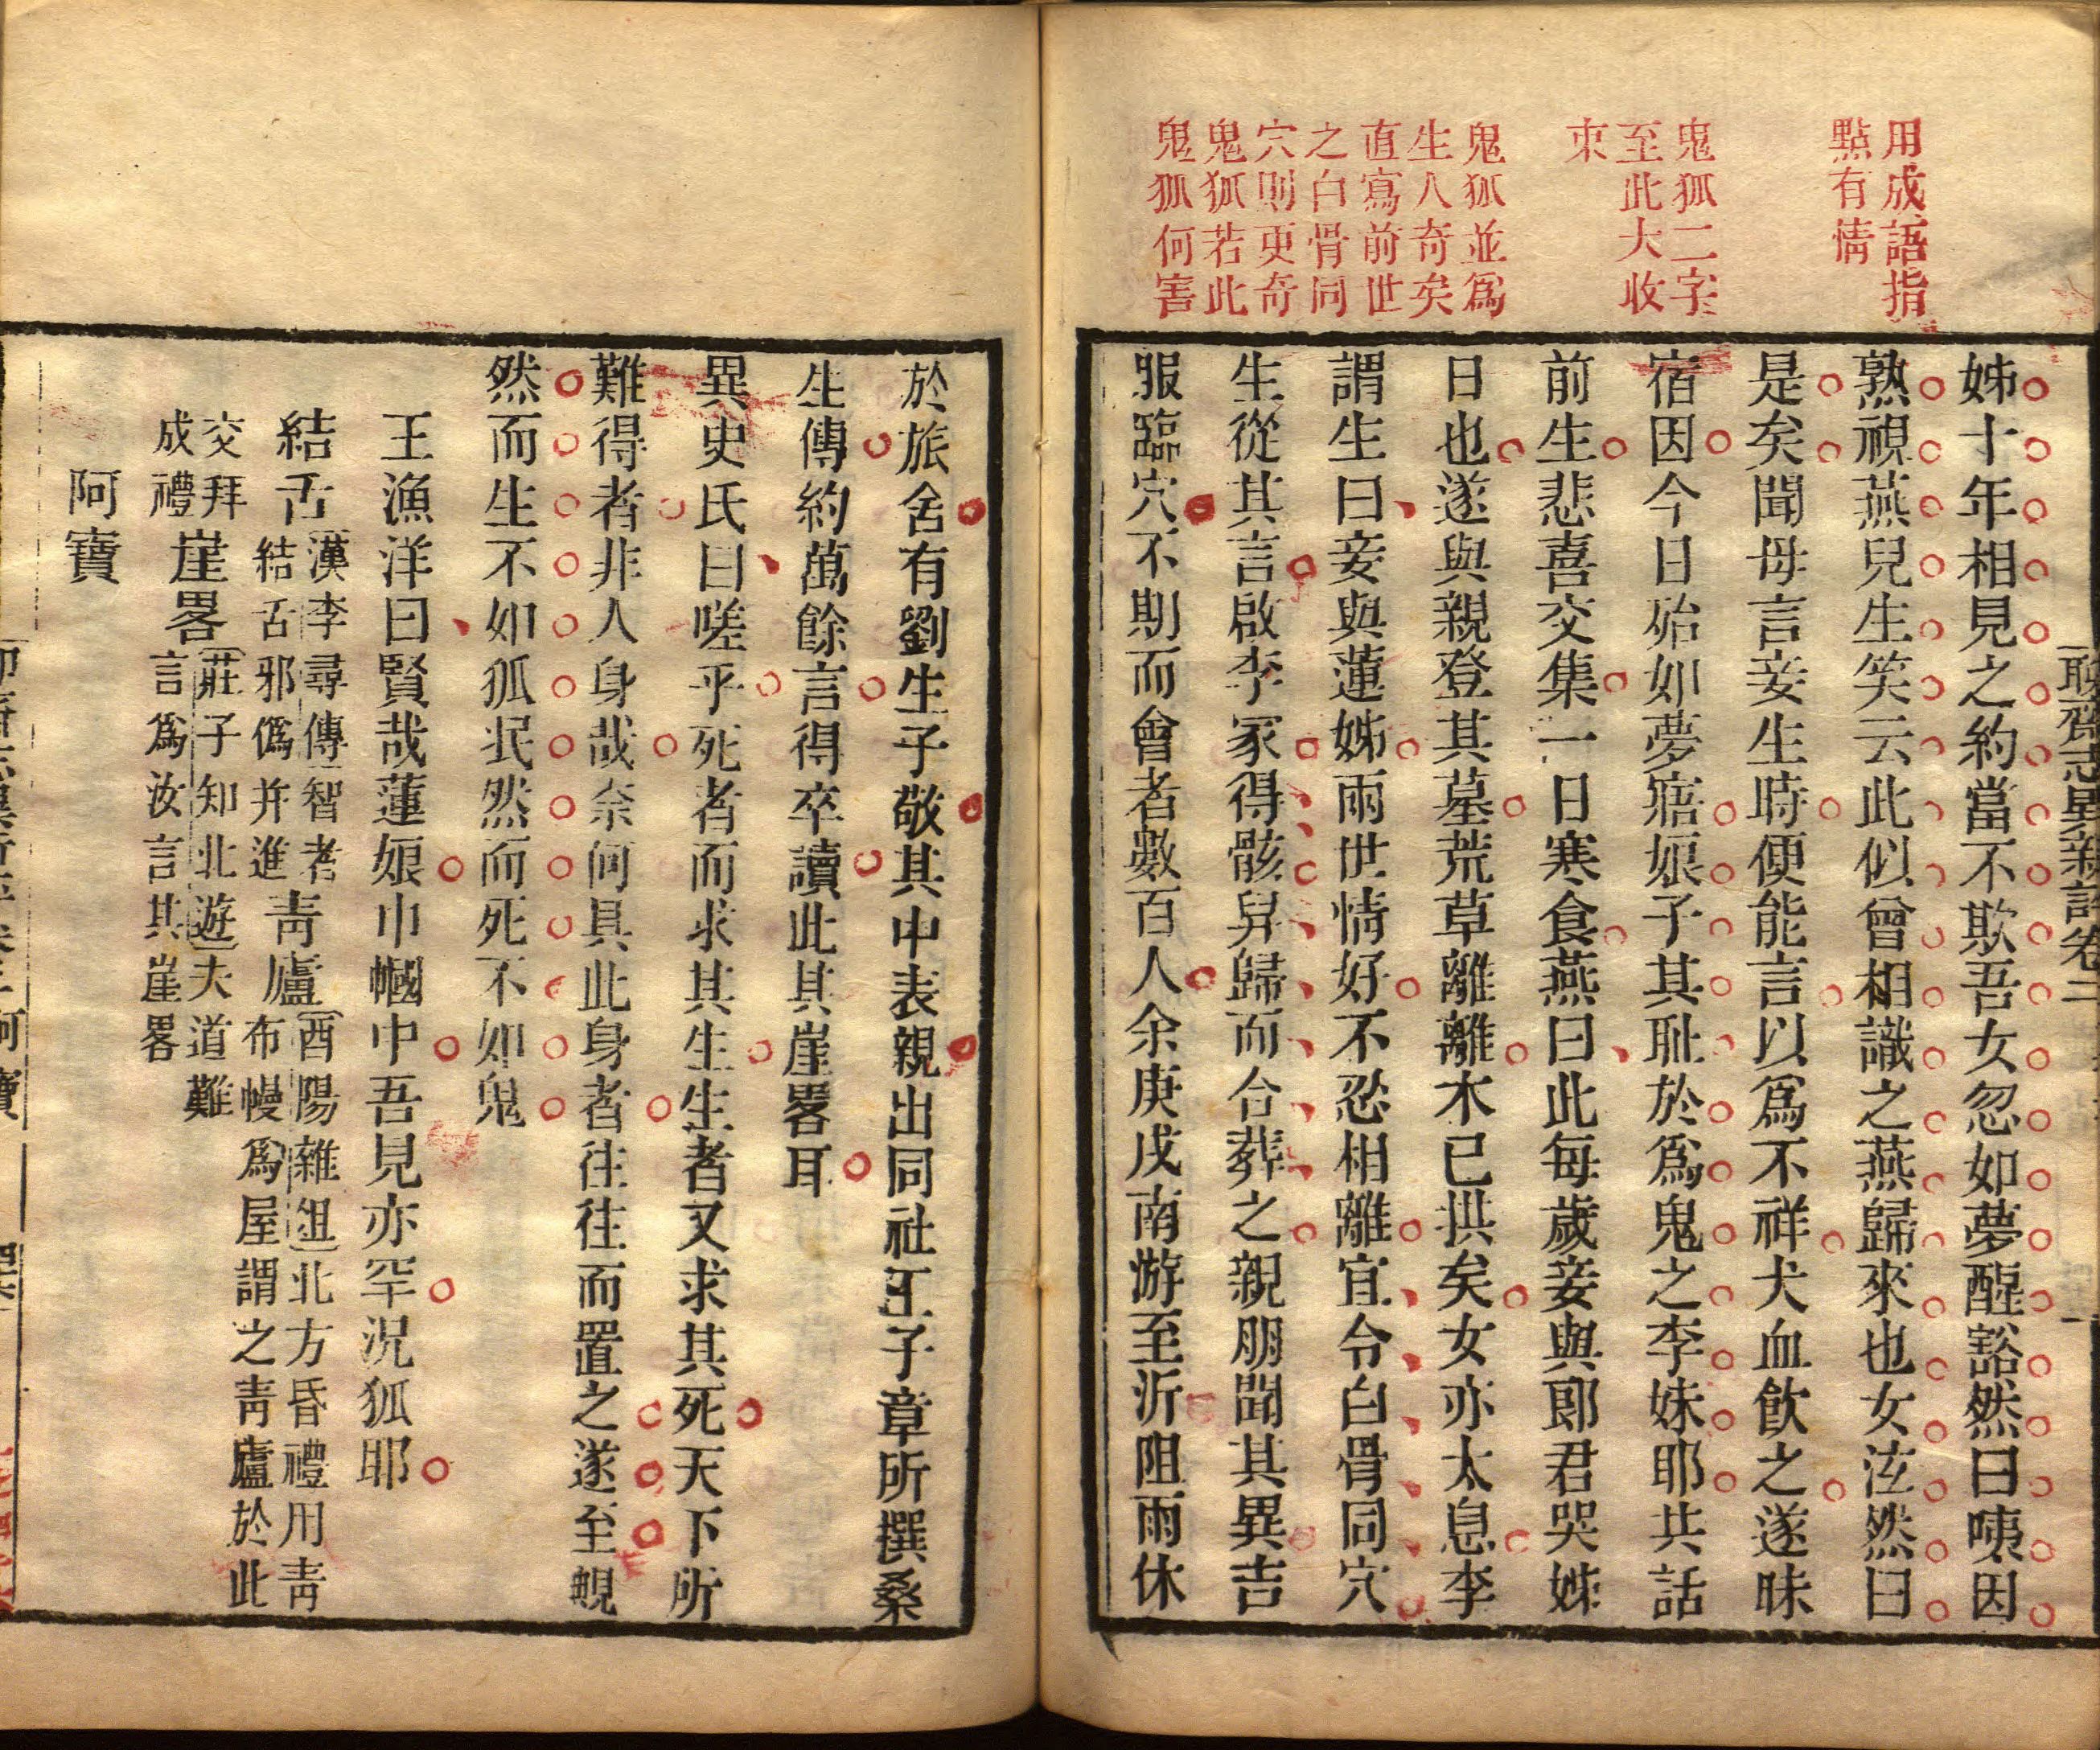 聊齋志異新評卷二
用成語指
點有情
鬼狐二字
至此大收
束
鬼狐並爲
生人奇矣
直寫前世
之白骨同
穴則更奇
鬼狐若此
鬼狐何害
姊十年相見之約當不欺吾女忽如夢醒豁然曰咦因
熟視燕兒生笑云此似曾相識之燕歸來也女泫然曰
是矣聞母言妾生時便能言以爲不祥犬血飲之遂昧
宿因今日殆如夢寤娘子其耻於爲鬼之李妹耶共話
前生悲喜交集一日寒食燕曰此每歲妾與郎君哭姊
日也遂與親登其墓荒草離離木已拱矣女亦太息李
謂生曰妾與蓮姊兩世情好不忍相離宜令白骨同穴
生從其言啟李冢得骸舁歸而合葬之親朋聞其異吉
服臨穴不期而會者數百人余庚戌南游至沂阻雨休
於旅舍有劉生子敬其中表親出同社王子章所撰桑
生傳約萬餘言得卒讀此其崖畧耳
異史氏曰嗟乎死者而求其生生者又求其死天下所
難得者非人身哉奈何具此身者往往而置之遂至覥
然而生不如狐泯然而死不如鬼
王漁洋曰賢哉蓮娘巾幗中吾見亦罕況狐耶
結舌漢李尋傳智者結舌邪僞并進青廬酉陽雜俎北方昏禮用青布幔爲屋謂之青廬於此
交拜成禮崖畧莊子知北遊夫道難言爲汝言其崖畧
阿寶
阿寶